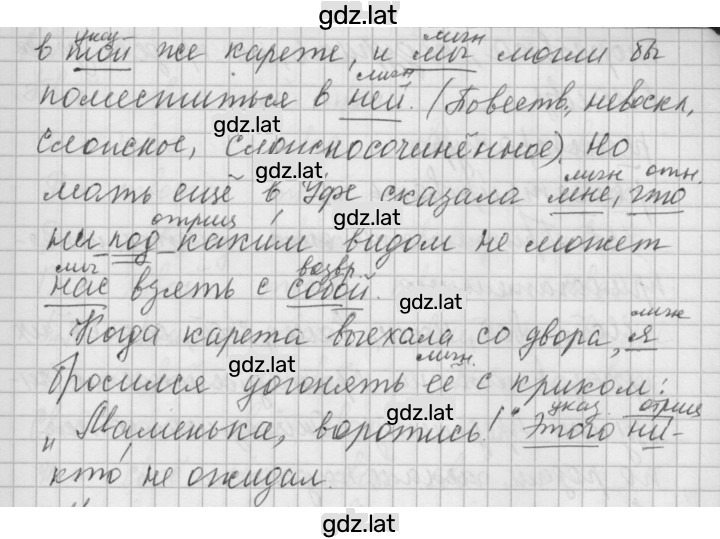 gdz.lat
указ. личн
в той же карете, и мы могли бы
личн
поместиться в ней. (Повеств., невоскл.,
gdz.lat
сложное, сложносочинённое). Но
gdz.lat
личн отн.
мать ещё в Уфе сказала мне, что
отриц gdz.lat
ни под каким видом не может
мы возвр.
нас взять с собой.
gdz.lat
личн
Когда карета выехала со двора, я
gdz.lat личн.
бросился догонять её с криком:
gdz.lat указ. отриц
„Маменька, воротись!" Этого ни-
кто не ожидал.
gdz.lat